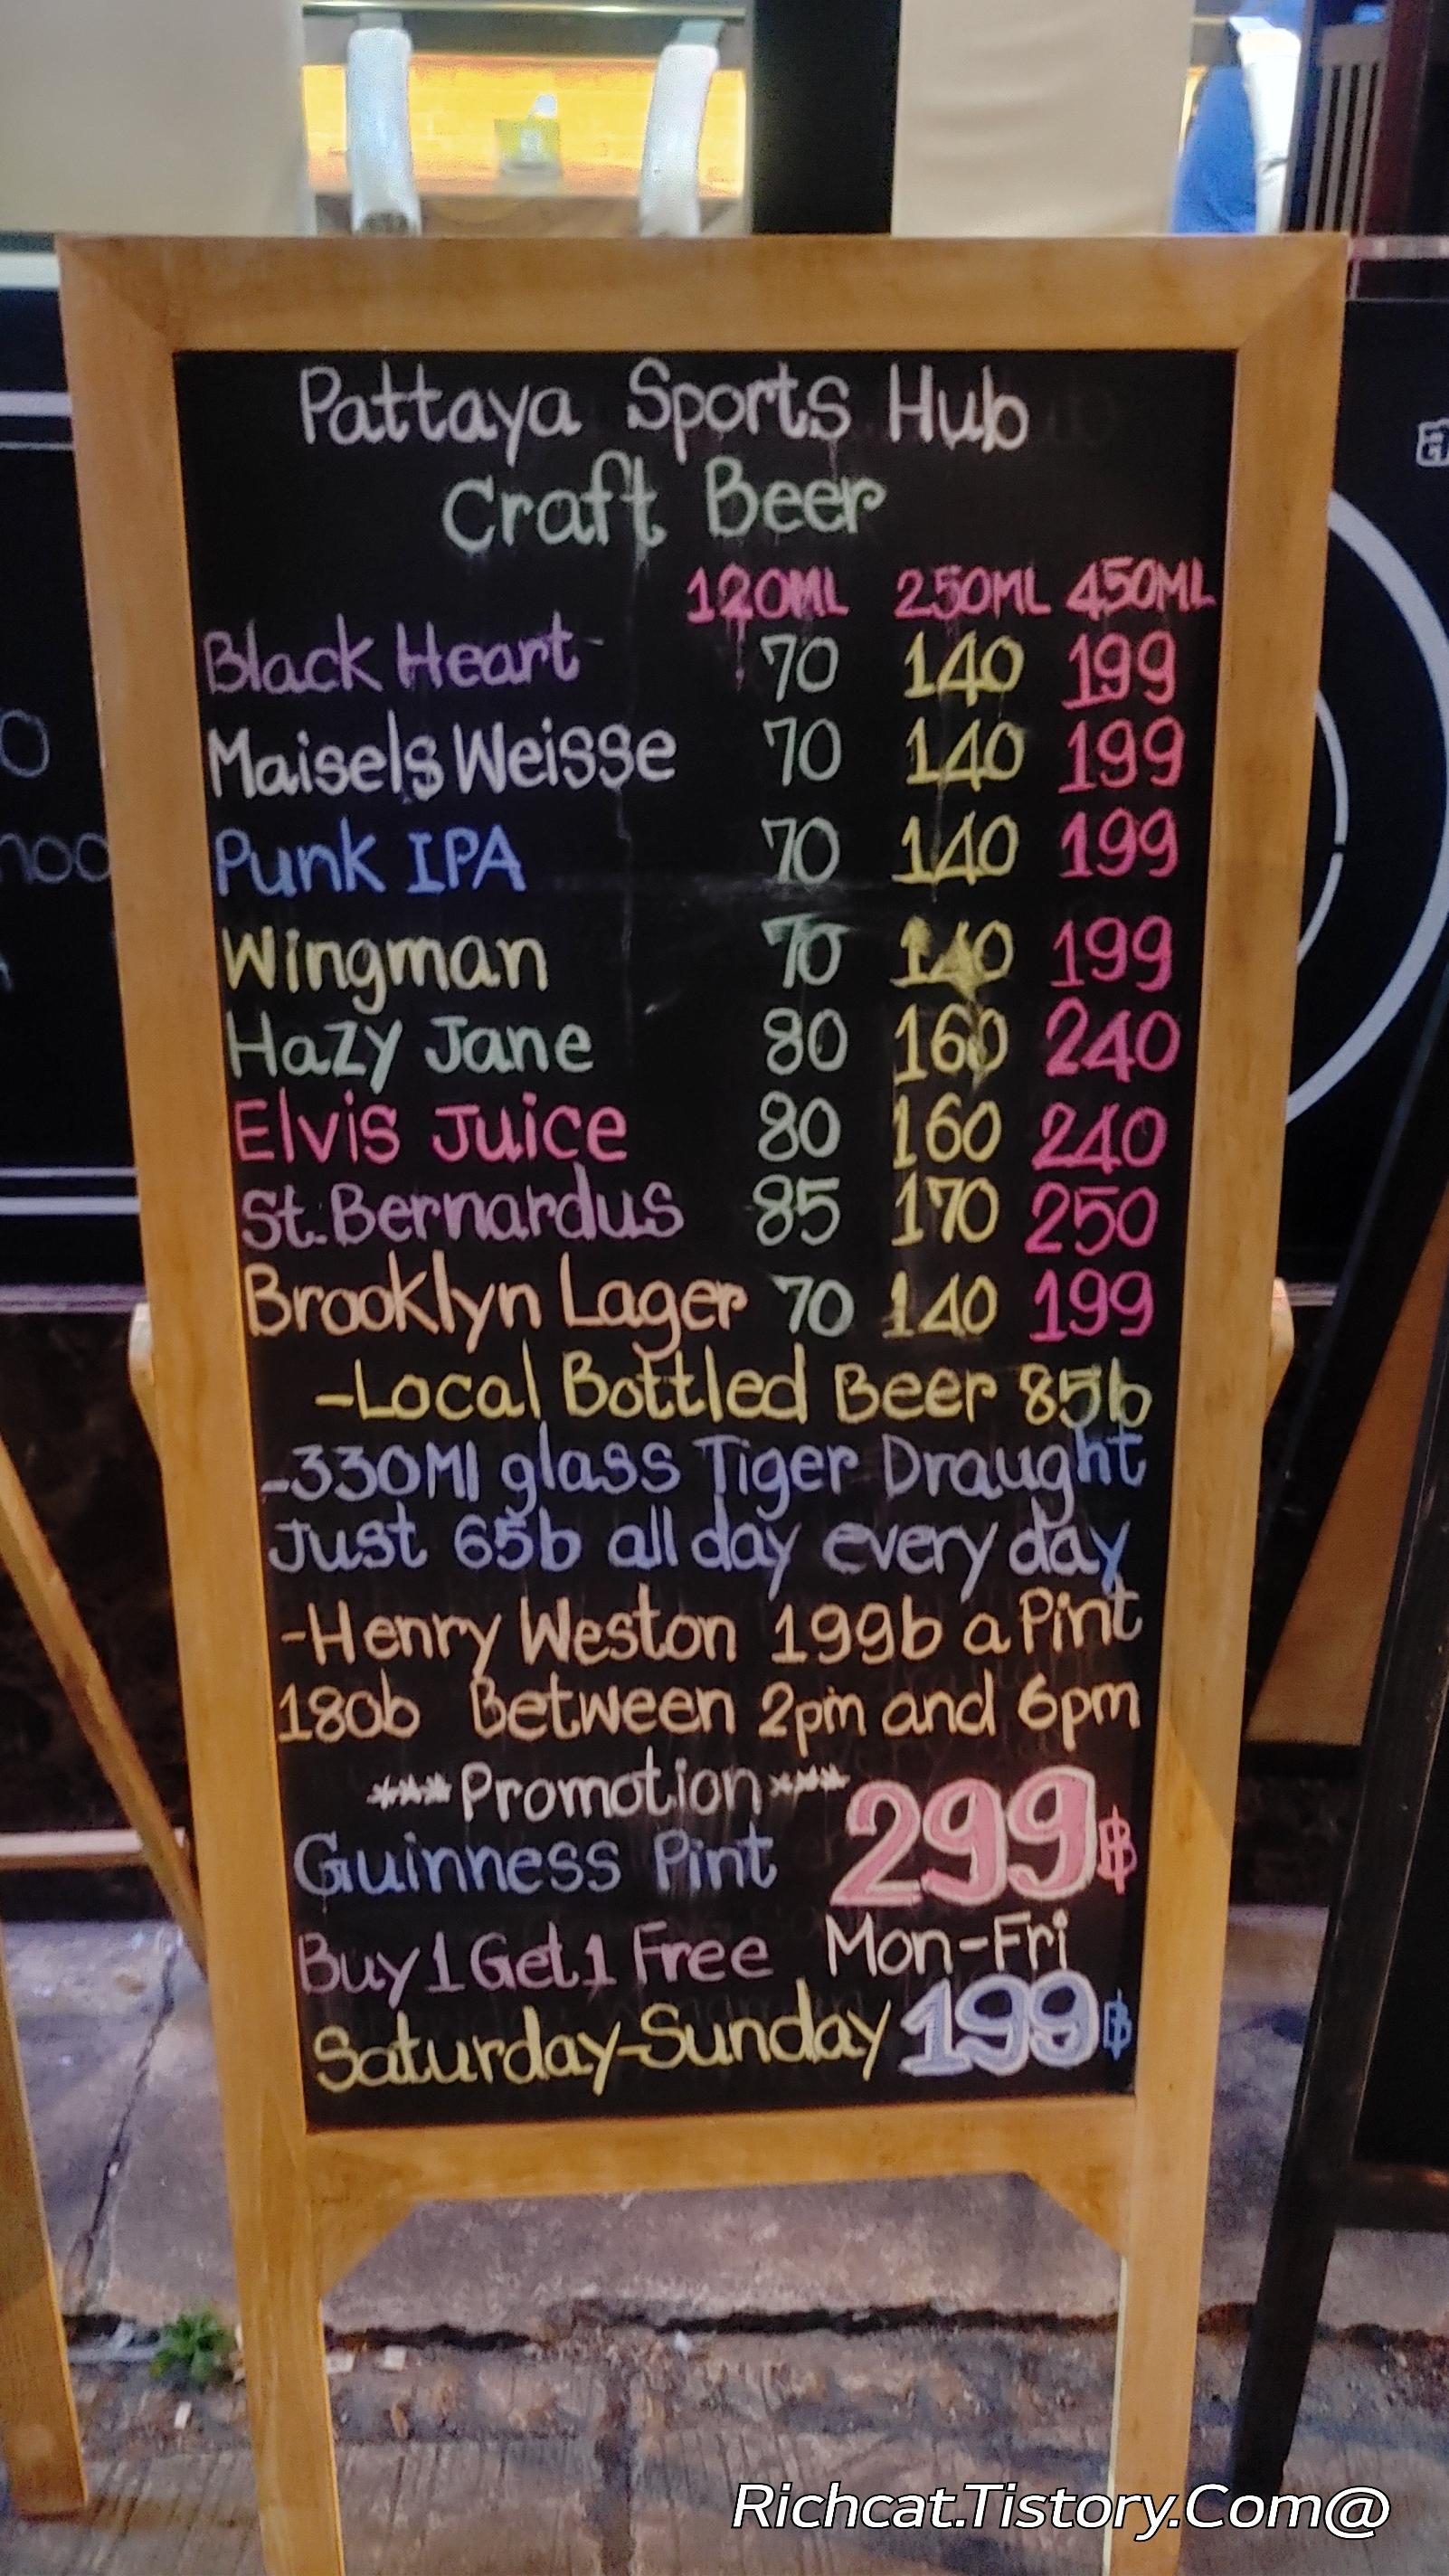 Pattaya Sports Hub
Craft Beer
120ML 250ML 450ML
Black Heart 70 140 199
Maisels Weisse 70 140 199
Punk IPA 70 140 199
Wingman 70 140 199
Hazy Jane 80 160 240
Elvis Juice 80 160 240
St.Bernardus 85 170 250
Brooklyn Lager 70 140 199
-Local Bottled Beer 85b
-330Ml glass Tiger Draught
Just 65b all day every day
-Henry Weston 199b a Pint
180b Between 2pm and 6pm
***Promotion***
Guinness Pint 299฿
Buy 1 Get 1 Free Mon-Fri
Saturday-Sunday 199฿
Richcat.Tistory.Com@